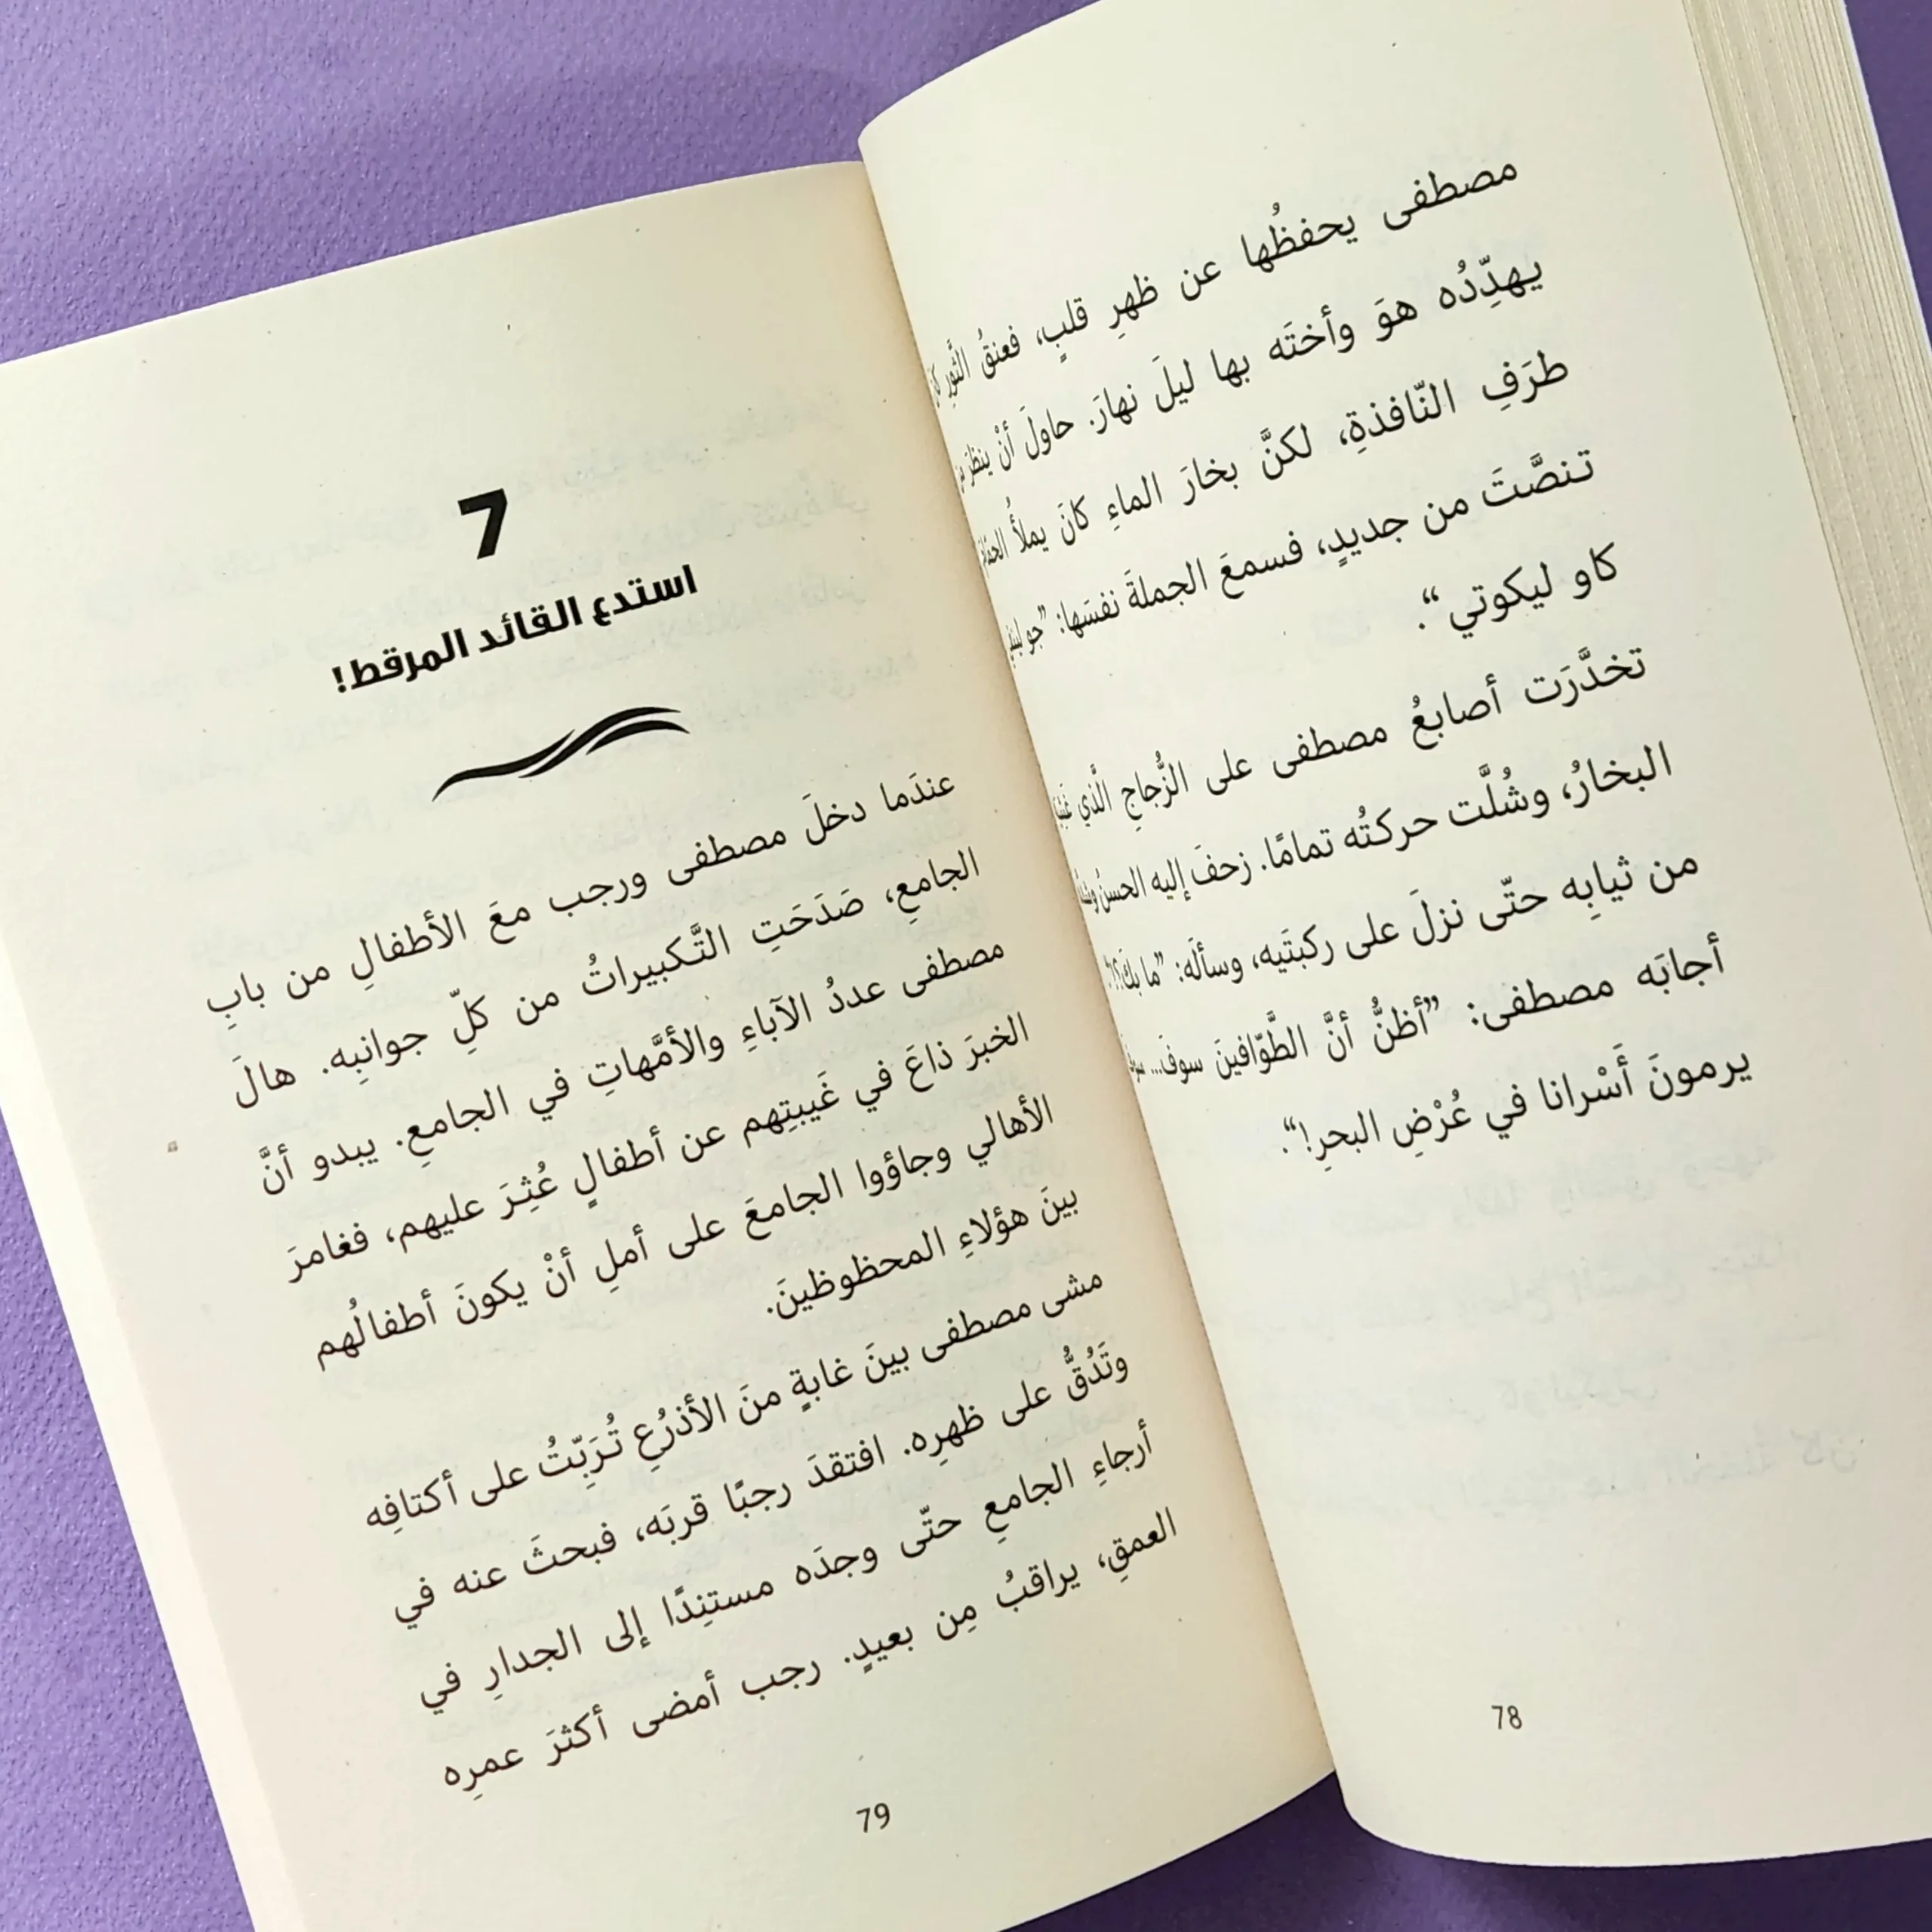 مصطفى يحفظُها عن ظهرِ قلبٍ، فعنقُ الثَّورِ
يهدِّدُه هوَ وأختَه بها ليلَ نهارَ. حاولَ أنْ ينظرَ
طرَفِ النّافذةِ، لكنَّ بخارَ الماءِ كانَ يملأُ
تنصَّتَ من جديدٍ، فسمعَ الجملةَ نفسَها: ”جو
كاو ليكوتي“.
تخدَّرَت أصابعُ مصطفى على الزُّجاجِ الَّذي
البخارُ، وشُلَّت حركتُه تمامًا. زحفَ إليه الحسنُ
من ثيابِه حتّى نزلَ على ركبتَيه، وسألَه: ”ما بكَ؟؟“
أجابَه مصطفى: ”أظنُّ أنَّ الطَّوّافينَ سوفَ...
يرمونَ أَسْرانا في عُرْضِ البحرِ!“.
78
7
استدع القائد المرقط!
عندَما دخلَ مصطفى ورجب معَ الأطفالِ من بابِ
الجامعِ، صَدَحَتِ التَّكبيراتُ من كلِّ جوانبِه. هالَ
مصطفى عددُ الآباءِ والأمَّهاتِ في الجامعِ. يبدو أنَّ
الخبرَ ذاعَ في غَيبتِهم عن أطفالٍ عُثِرَ عليهم، فغامرَ
الأهالي وجاؤوا الجامعَ على أملِ أنْ يكونَ أطفالُهم
بينَ هؤلاءِ المحظوظينَ.
مشى مصطفى بينَ غابةٍ منَ الأذرُعِ تُرَبِّتُ على أكتافِه
وتَدُقُّ على ظهرِه. افتقدَ رجبًا قربَه، فبحثَ عنه في
أرجاءِ الجامعِ حتّى وجدَه مستنِدًا إلى الجدارِ في
العمقِ، يراقبُ مِن بعيدٍ. رجب أمضى أكثرَ عمرِه
79